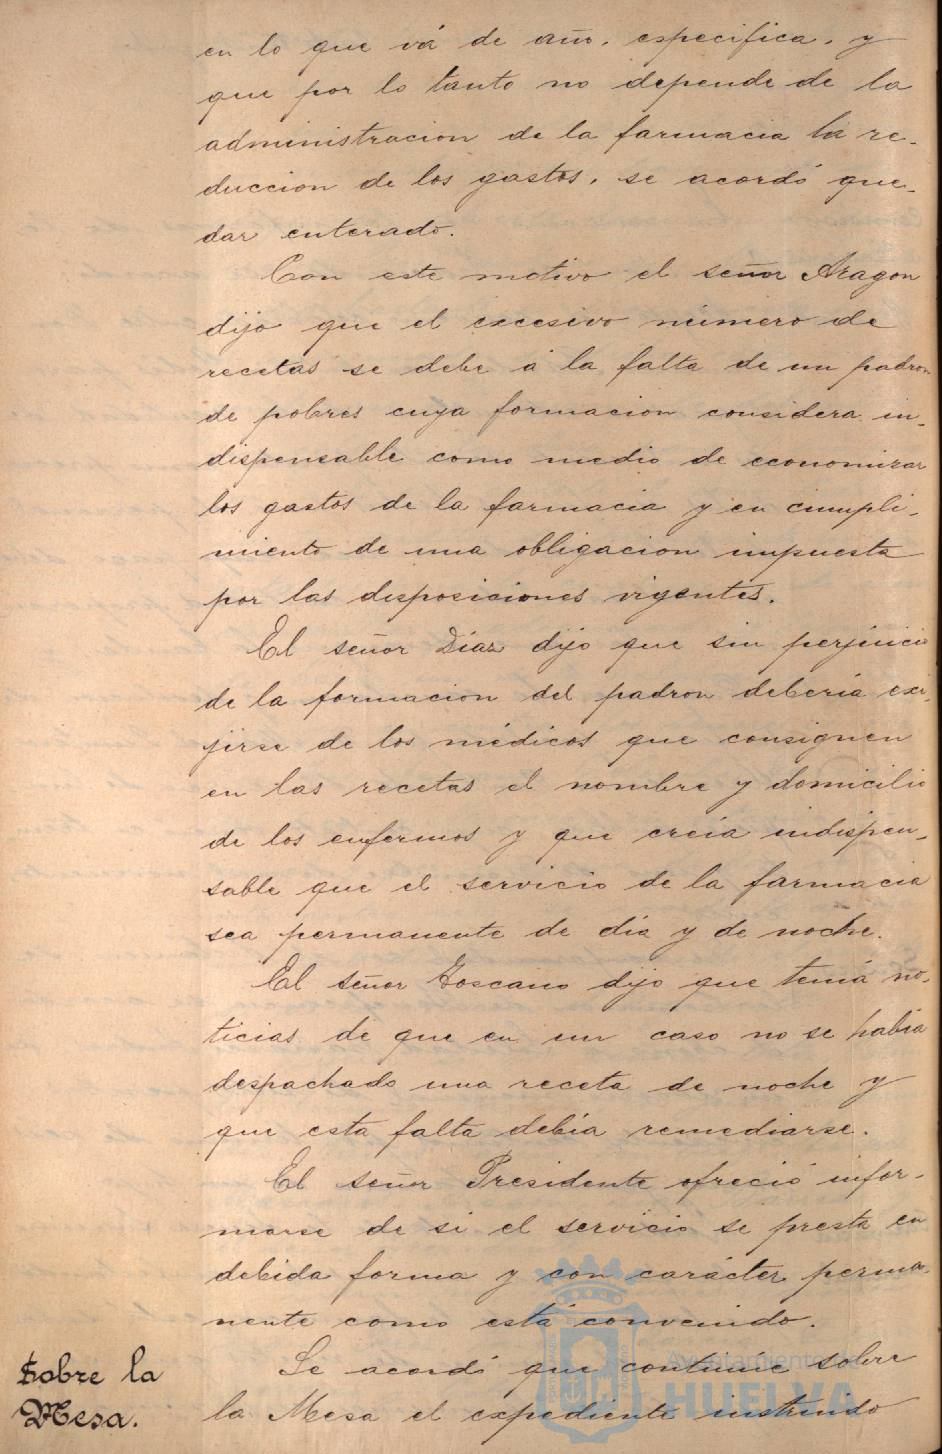 en lo que vá de año, especifica, y
que por lo tanto no depende de la
administracion de la farmacia la re-
duccion de los gastos, se acordó que-
dar enterado.
Con este motivo el señor Aragon
dijo que el excesivo número de
recetas se debe á la falta de un padron
de pobres cuya formacion considera in-
dispensable como medio de economizar
los gastos de la farmacia y en cumpli-
miento de una obligacion impuesta
por las disposiciones vigentes.
El señor Díaz dijo que sin perjuicio
de la formacion del padron debería exi-
jirse de los médicos que consignen
en las recetas el nombre y domicilio
de los enfermos y que creía indispen-
sable que el servicio de la farmacia
sea permanente de día y de noche.
El señor Toscano dijo que tenía no-
ticias de que en un caso no se había
despachado una receta de noche y
que esta falta debía remediarse.
El señor Presidente ofreció infor-
marse de si el servicio se presta en
debida forma y con carácter perma-
nente como está convenido.
Sobre la
Mesa.
Se acordó que continúe sobre
la Mesa el expediente instruido
Ayuntamiento de
HUELVA